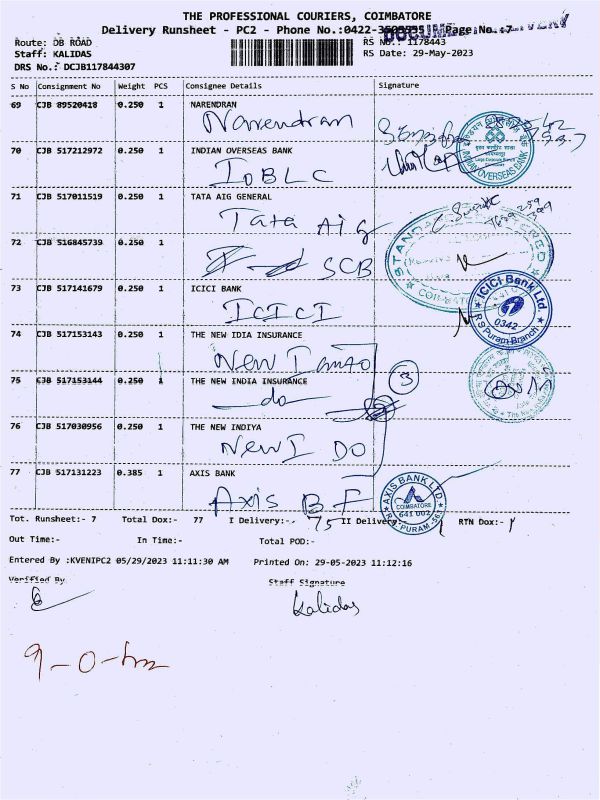 THE PROFESSIONAL COURIERS, COIMBATORE
Delivery Runsheet - PC2 - Phone No.:0422- Page No.:7
Route: DB ROAD
RS No.: 1178443
Staff: KALIDAS
RS Date: 29-May-2023
DRS No.: DCJB117844307
S No Consignment No Weight PCS Consignee Details Signature
69 CJB 89520418 0.250 1 NARENDRAN
Narendran
70 CJB 517212972 0.250 1 INDIAN OVERSEAS BANK
IOBLC
INDIAN OVERSEAS BANK
71 CJB 517011519 0.250 1 TATA AIG GENERAL
Tata Aig
72 CJB 516845739 0.250 1
SCB
73 CJB 517141679 0.250 1 ICICI BANK
ICICI
ICICI Bank Ltd.
0342
R S Puram Branch
74 CJB 517153143 0.250 1 THE NEW IDIA INSURANCE
New
75 CJB 517153144 0.250 1 THE NEW INDIA INSURANCE
do
3
76 CJB 517030956 0.250 1 THE NEW INDIYA
New I DO
77 CJB 517131223 0.385 1 AXIS BANK
Axis B F
AXIS BANK LTD.
COIMBATORE
641 002
R S PURAM-561
Tot. Runsheet:- 7 Total Dox:- 77 I Delivery:- 75 II Delivery:- RTN Dox:-
Out Time:- In Time:- Total POD:-
Entered By :KVENIPC2 05/29/2023 11:11:30 AM Printed On: 29-05-2023 11:12:16
Verified By
Staff Signature
Kalidas